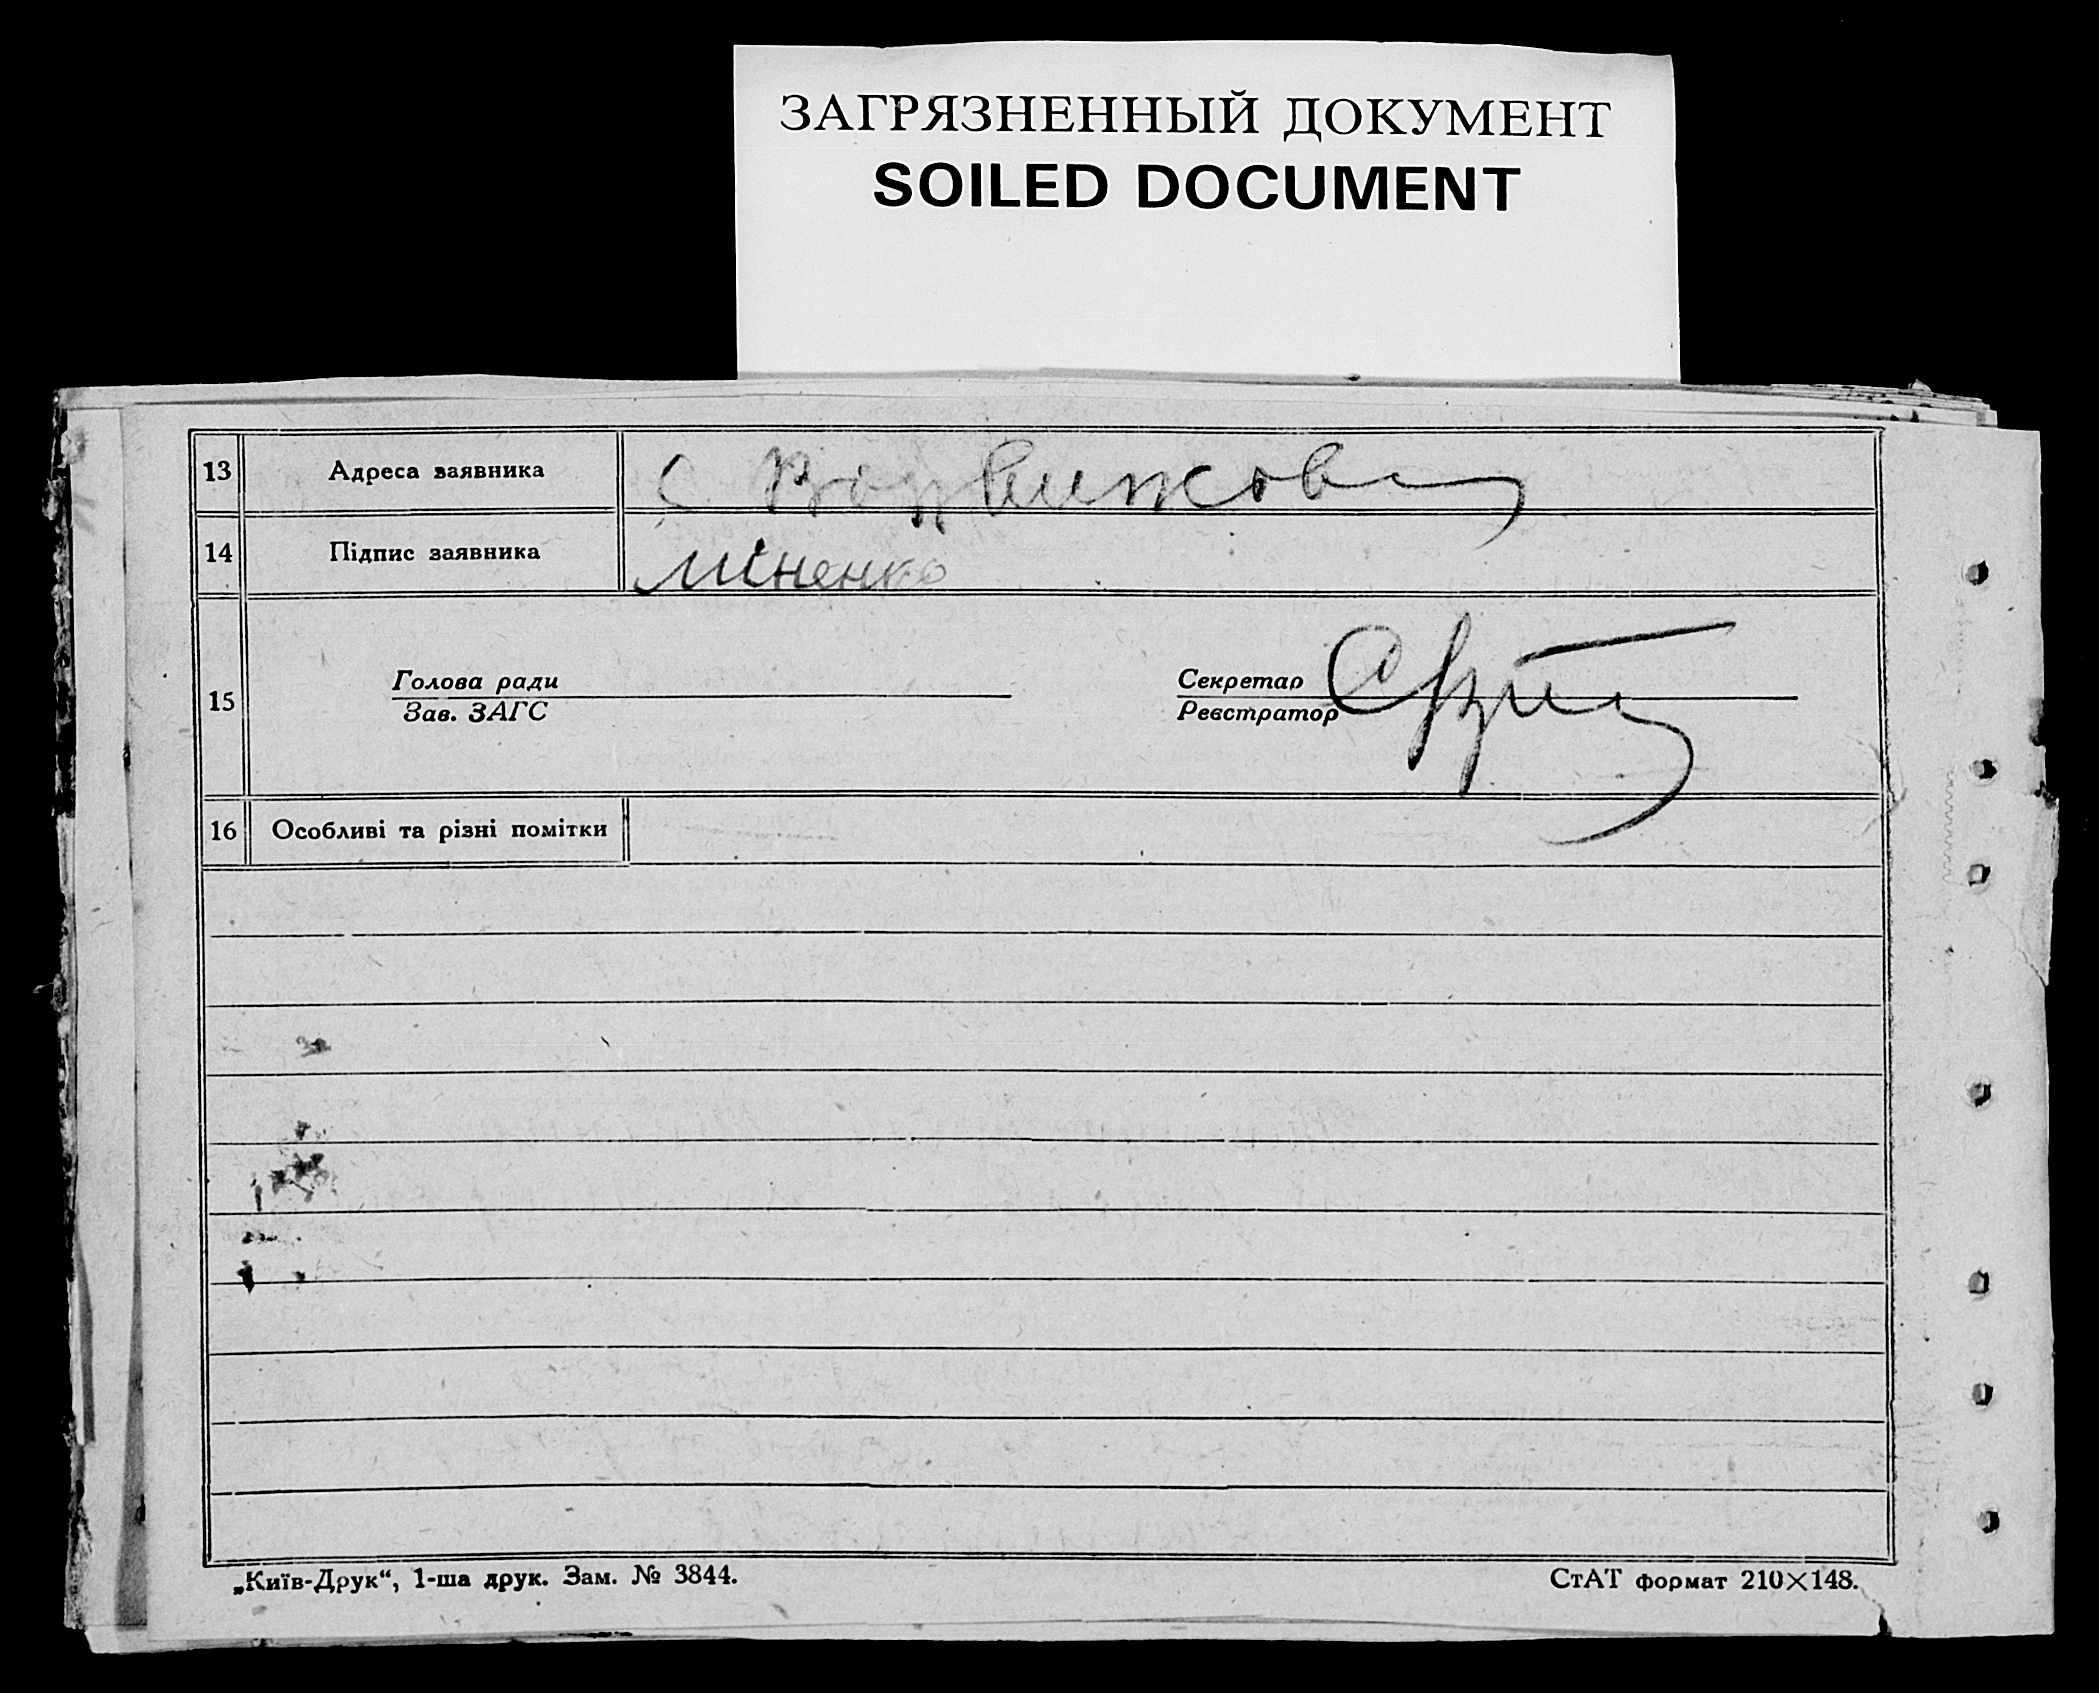 ЗАГРЯЗНЕННЫЙ ДОКУМЕНТ
SOILED DOCUMENT
13 Адреса заявника с. Воздвижовка
14 Підпис заявника Міненко
15 Голова ради Секретар
Зав. ЗАГС Реєстратор
16 Особливі та різні помітки
„Київ-Друк“, 1-ша друк. Зам. № 3844. СтАТ формат 210×148.